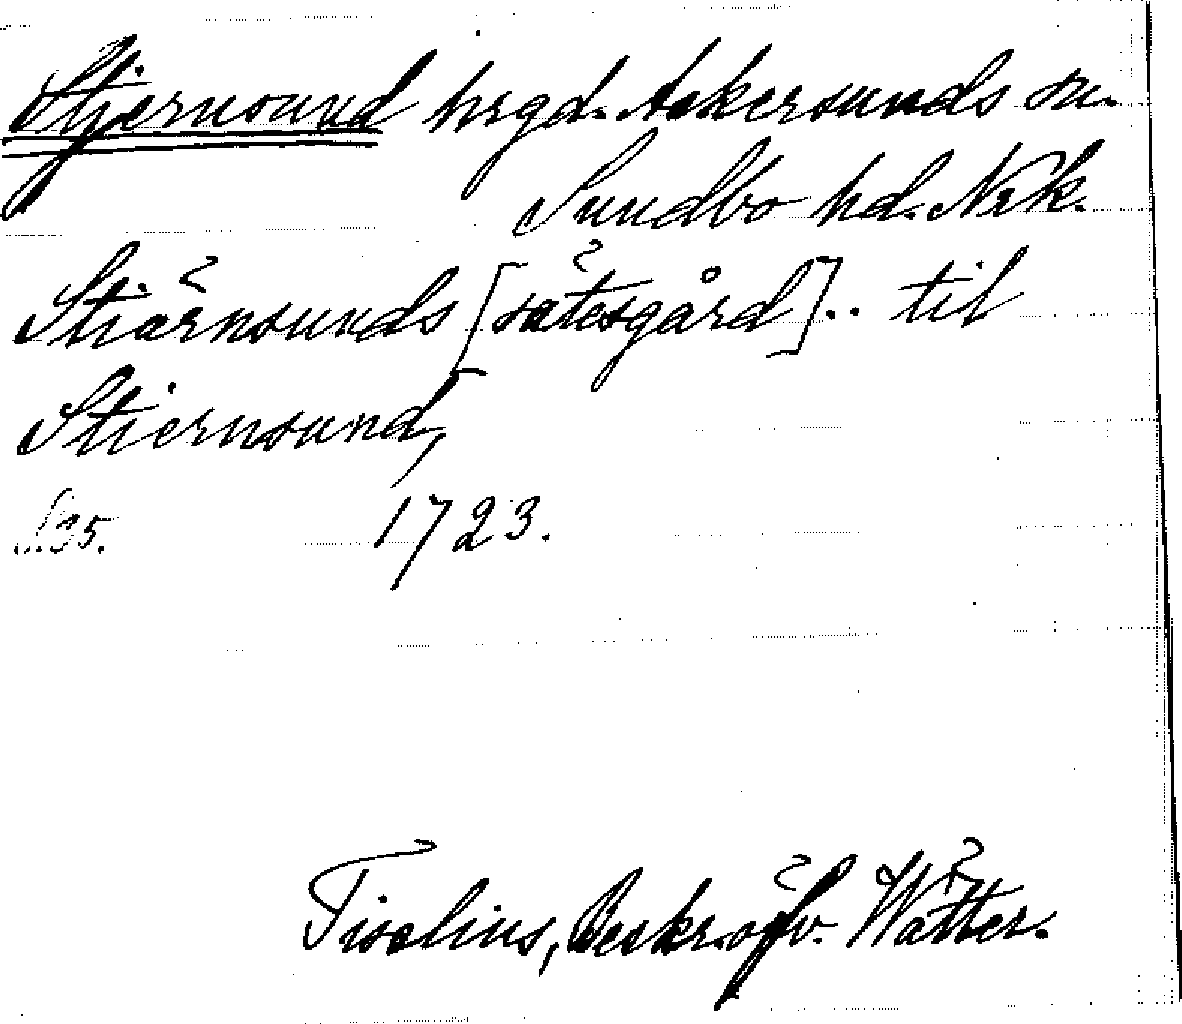 Stjernsund hrgd. Askersunds sn.
Sundbo hd. Nrk.
Stiärnsunds [sätesgård].. til
Stiernsund,
S.35. 1723.
Tiselius, Beskr. öfv. Wätter.